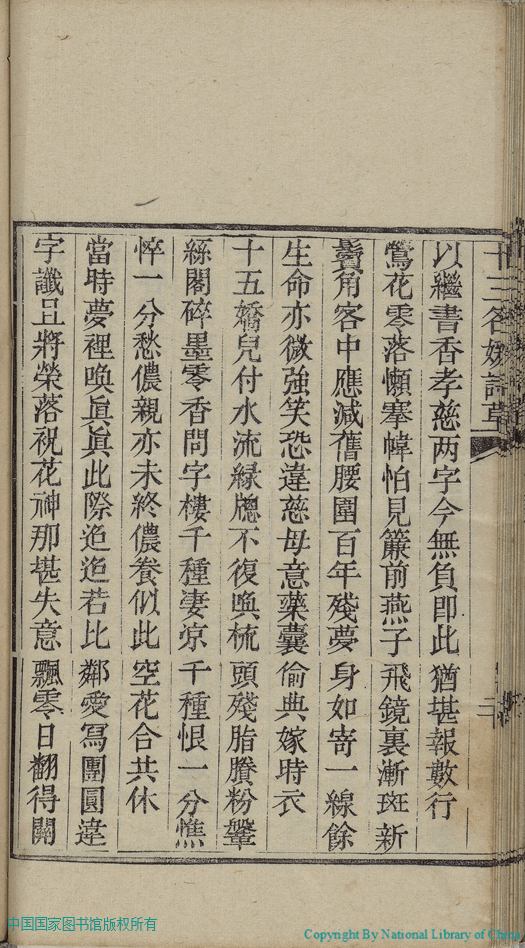 十三名媛詩草
以繼書香孝慈两字今無負即此猶堪報數行
鶯花零落懶搴幃怕見簾前燕子飛鏡裏漸斑新
鬢角客中應減舊腰圍百年殘夢身如寄一線餘
生命亦微強笑恐違慈母意藥囊偷典嫁時衣
十五嬌兒付水流緑牕不復喚梳頭殘脂賸粉鞶
絲閣碎墨零香問字樓千種凄凉千種恨一分憔
悴一分愁儂親亦未終儂養似此空花合共休
當時夢裡喚眞眞此際迯迯若比鄰愛寫團圓違
字讖且將榮落祝花神那堪失意飄零日翻得關
中国国家图书馆版权所有
Copyright By National Library of China